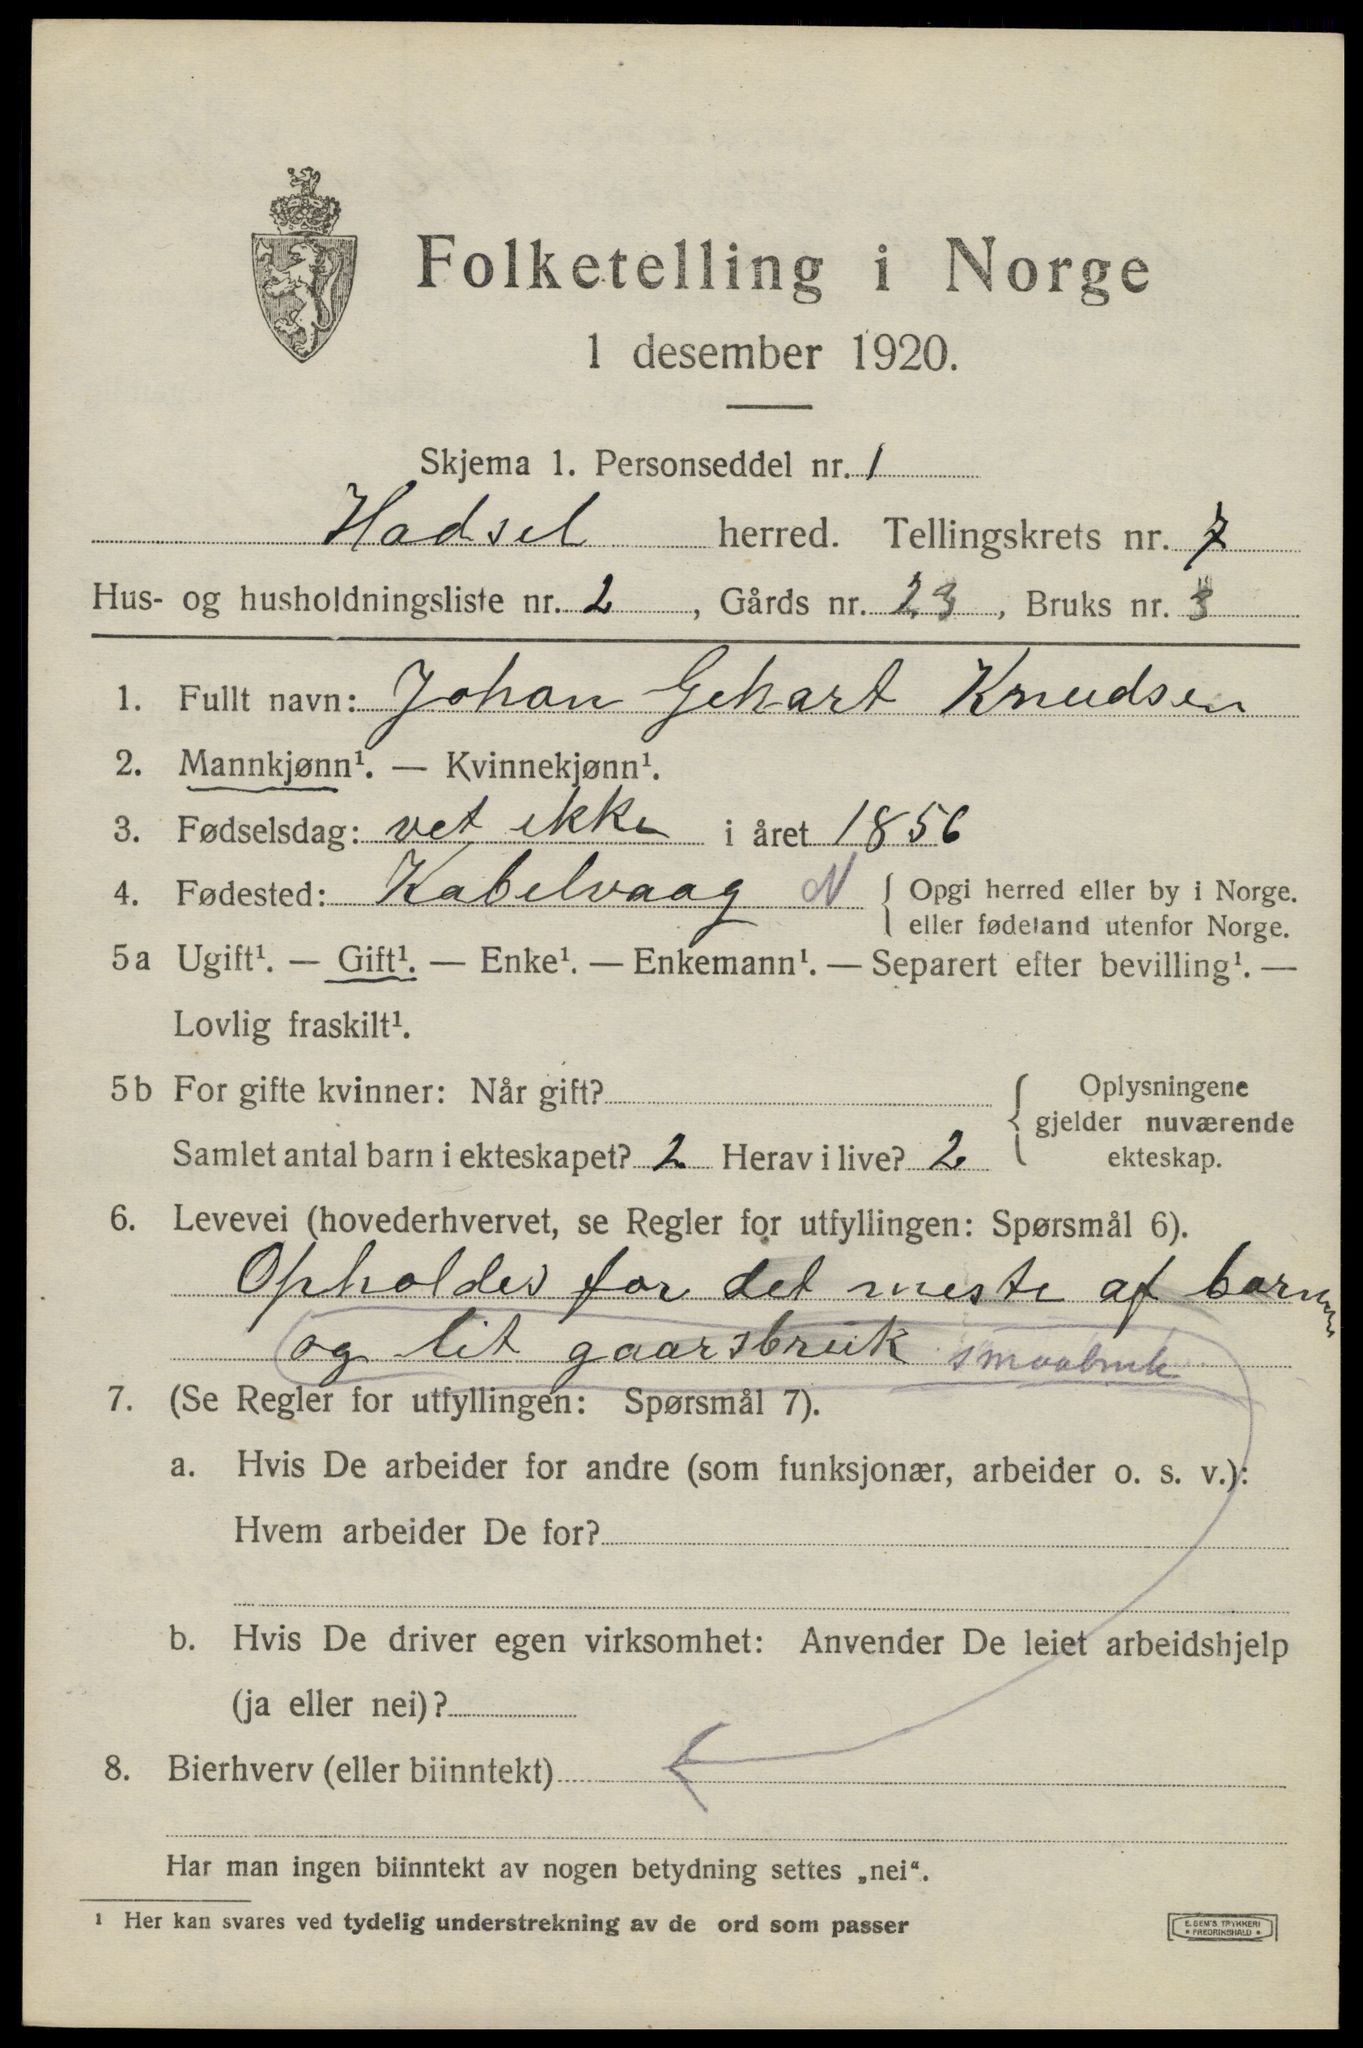 Folketelling i Norge
1 desember 1920.
Skjema 1. Personseddel nr. 1
Hadsel herred. Tellingskrets nr. 7
Hus- og husholdningsliste nr. 2, Gårds nr. 23, Bruks nr. 3
1. Fullt navn: Johan Gehart Knudsen
2. Mannkjønn¹. — Kvinnekjønn¹.
3. Fødselsdag: vet ikke i året 1856
4. Fødested: Kabelvaag N { Opgi herred eller by i Norge.
eller fødeland utenfor Norge.
5a Ugift¹. — Gift¹. — Enke¹. — Enkemann¹. — Separert efter bevilling¹. —
Lovlig fraskilt¹.
5b For gifte kvinner: Når gift?
Samlet antal barn i ekteskapet? 2 Herav i live? 2
{ Oplysningene
gjelder nuværende
ekteskap.
6. Levevei (hovederhvervet, se Regler for utfyllingen: Spørsmål 6).
Opholdes for det meste af barnene
og lit gaarsbruk smaabruk
7. (Se Regler for utfyllingen: Spørsmål 7).
a. Hvis De arbeider for andre (som funksjonær, arbeider o. s. v.):
Hvem arbeider De for?
b. Hvis De driver egen virksomhet: Anvender De leiet arbeidshjelp
(ja eller nei)?
8. Bierhverv (eller biinntekt)
Har man ingen biinntekt av nogen betydning settes „nei“.
¹ Her kan svares ved tydelig understrekning av de ord som passer
E. SEM'S TRYKKERI
• FREDRIKSHALD •